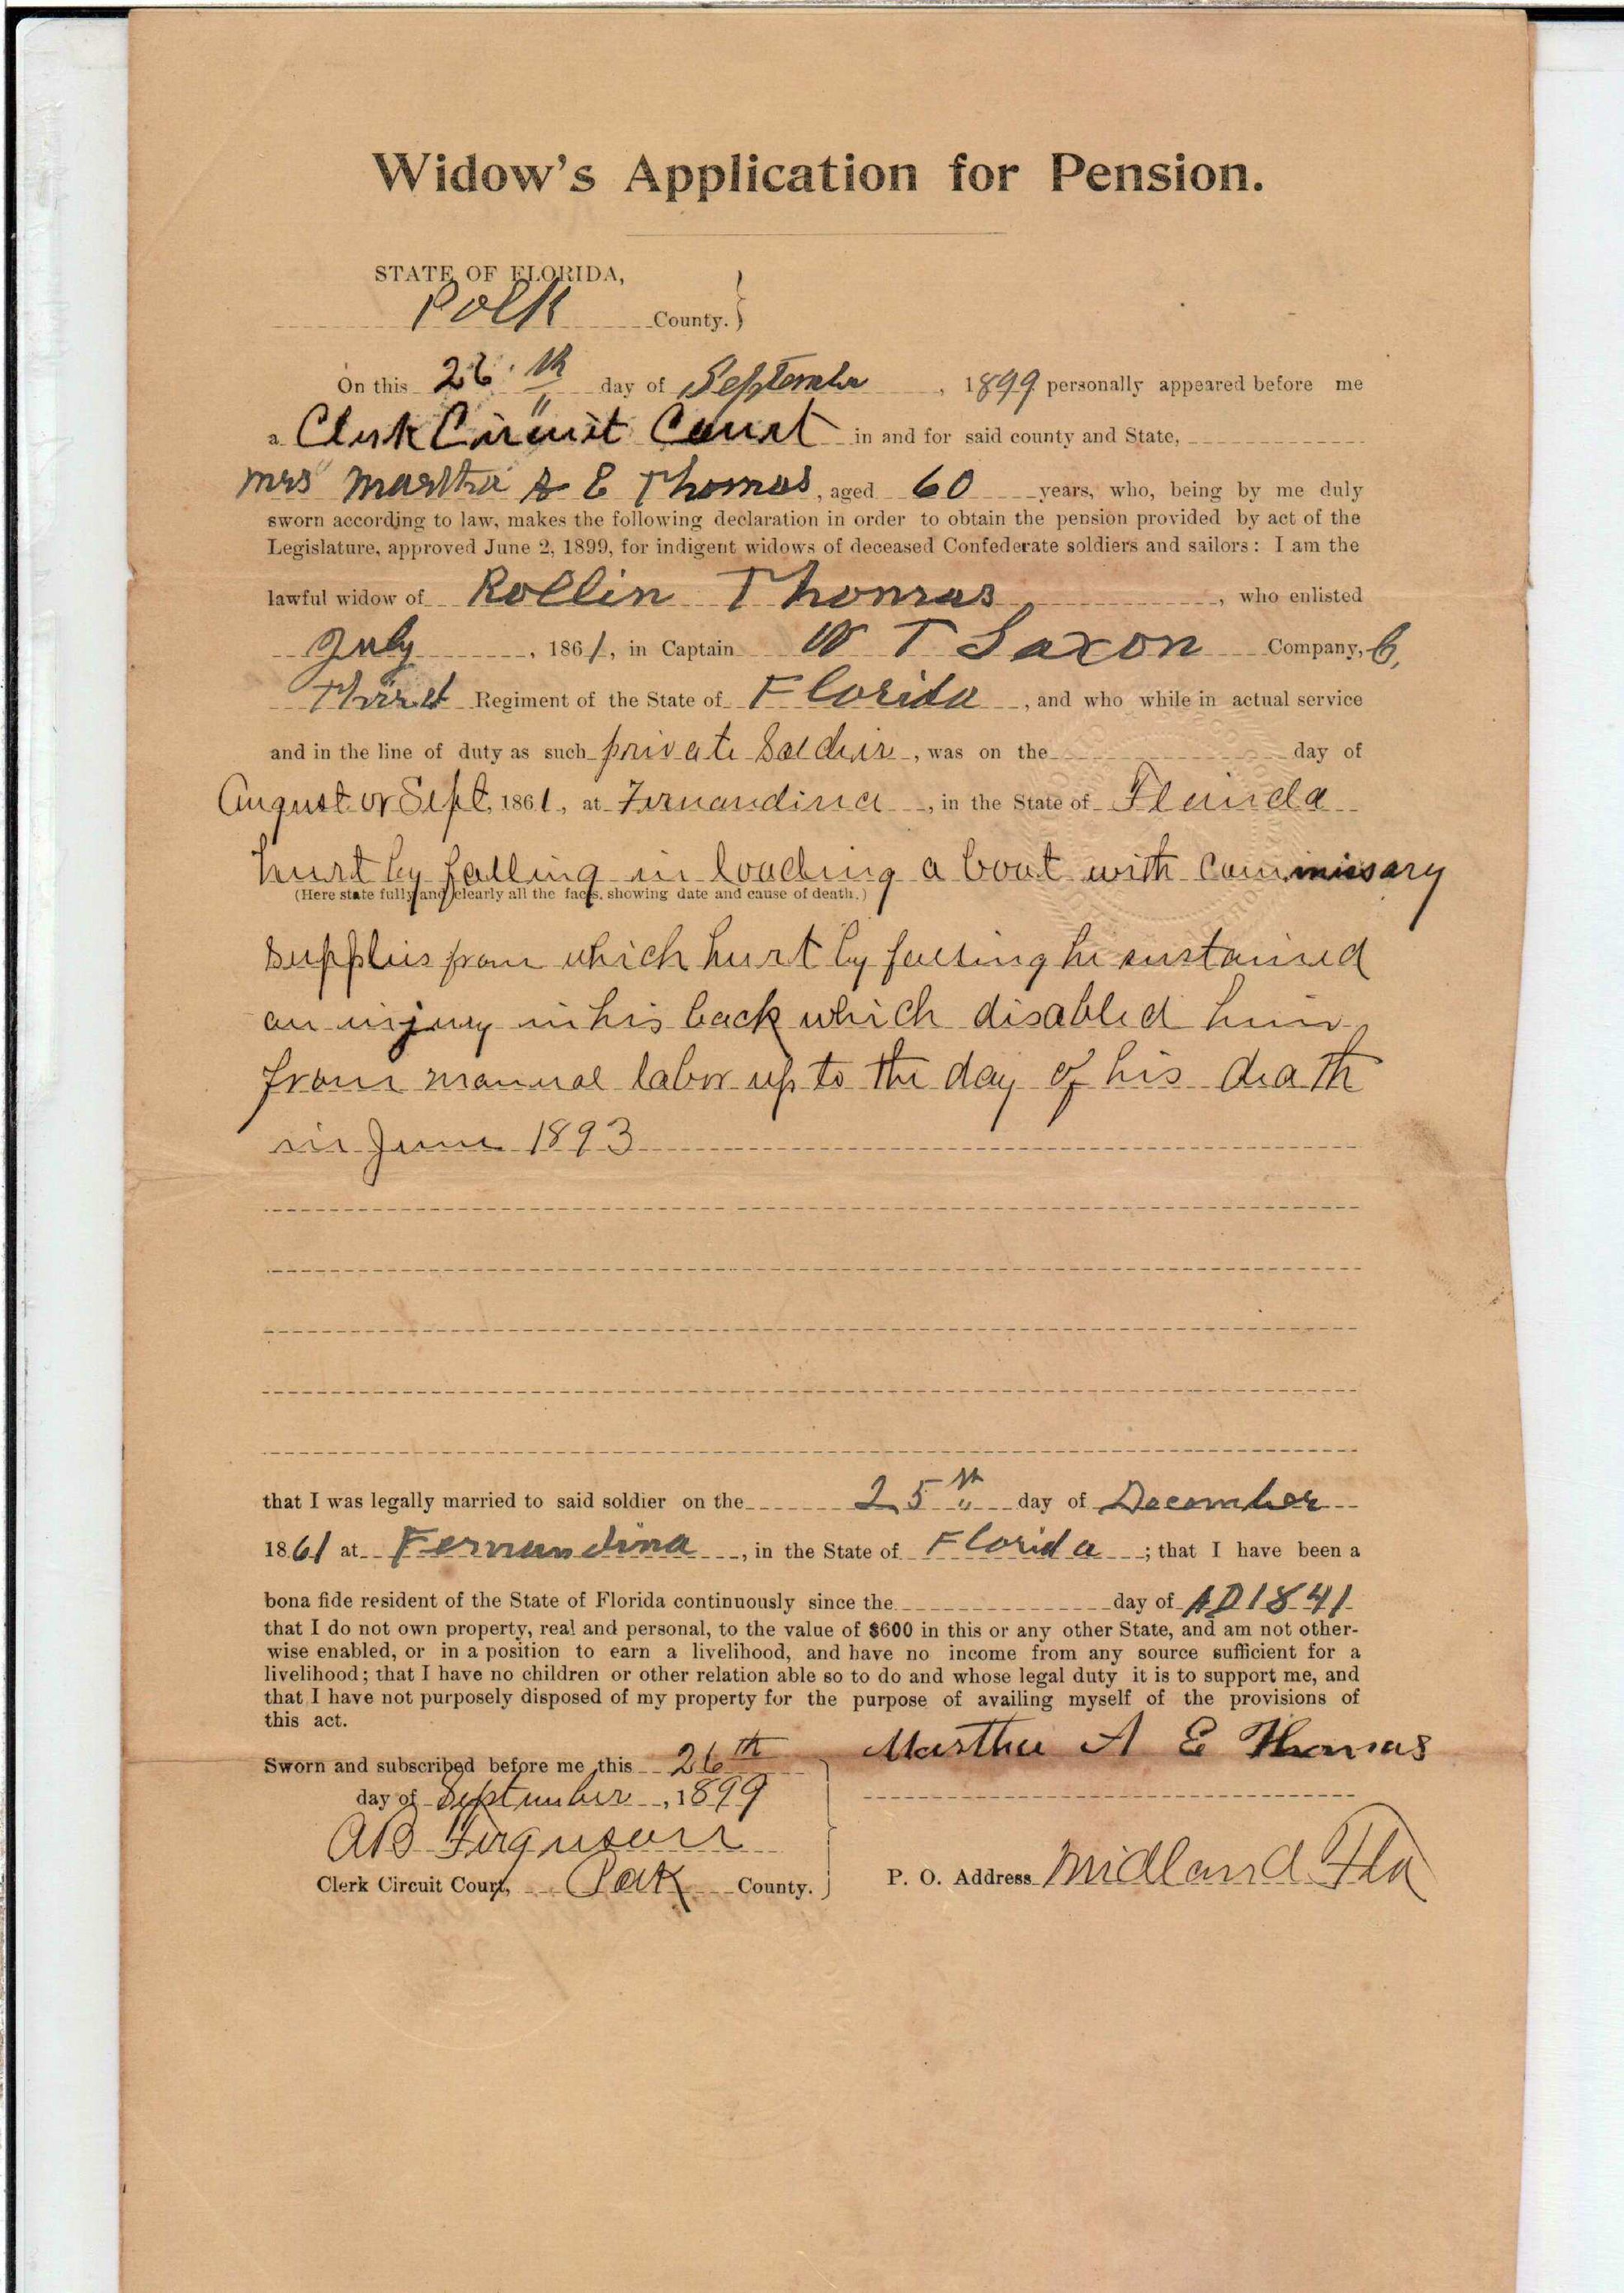 Widow's Application for Pension.
STATE OF FLORIDA,
Polk County. }
On this 26th day of September, 1899 personally appeared before me
a Clerk Circuit Court in and for said county and State,
Mrs Martha A E Thomas, aged 60 years, who, being by me duly
sworn according to law, makes the following declaration in order to obtain the pension provided by act of the
Legislature, approved June 2, 1899, for indigent widows of deceased Confederate soldiers and sailors: I am the
lawful widow of Rollin Thomas, who enlisted
July, 1861, in Captain W T Saxon Company,
Third Regiment of the State of Florida, and who while in actual service
and in the line of duty as such private Soldier, was on the day of
August or Sept, 1861, at Fernandina, in the State of Florida
hurt by falling in loading a boat with Commissary
(Here state fully and clearly all the facts, showing date and cause of death.)
supplies from which hurt by falling he sustained
an injury in his back which disabled him
from manual labor up to the day of his death
in June 1893
that I was legally married to said soldier on the 25th day of December
1861 at Fernandina, in the State of Florida; that I have been a
bona fide resident of the State of Florida continuously since the day of AD 1841
that I do not own property, real and personal, to the value of $600 in this or any other State, and am not other-
wise enabled, or in a position to earn a livelihood, and have no income from any source sufficient for a
livelihood; that I have no children or other relation able so to do and whose legal duty it is to support me, and
that I have not purposely disposed of my property for the purpose of availing myself of the provisions of
this act.
Martha A E Thomas
Sworn and subscribed before me this 26th
day of September, 1899
A B Ferguson
Clerk Circuit Court, Polk County. }
P. O. Address Midland Fla